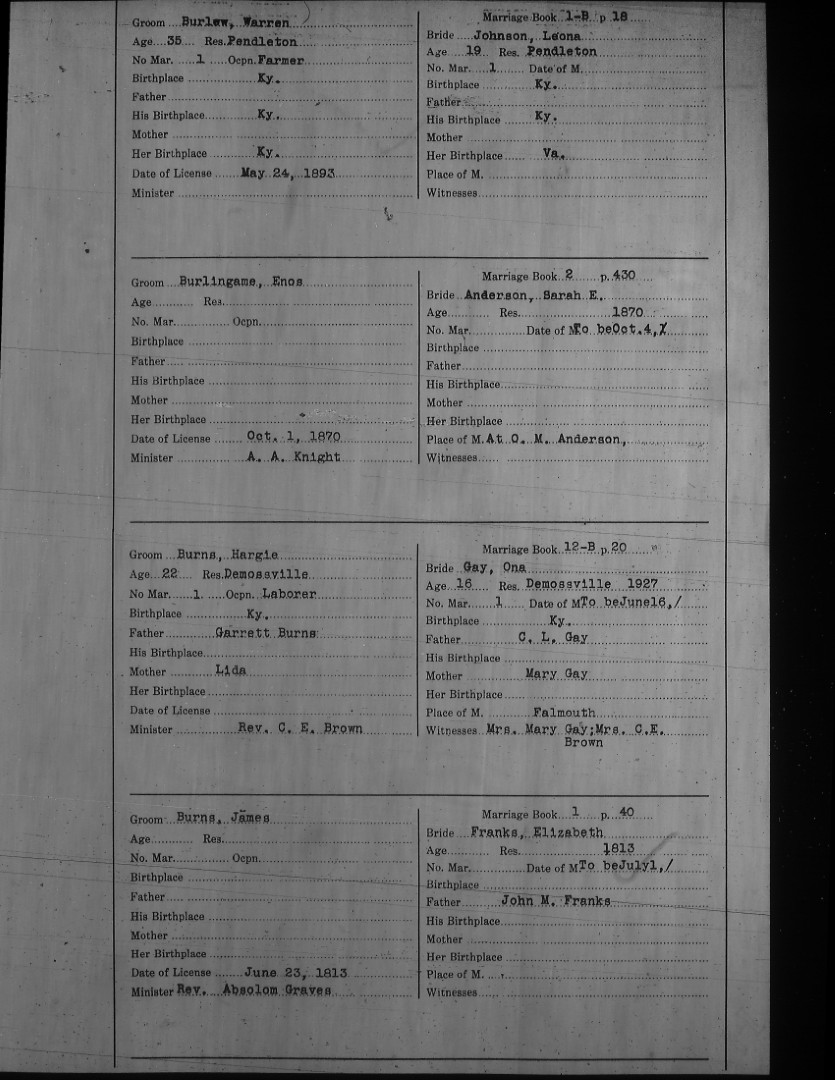 Groom Burlew, Warren
Age 35 Res. Pendleton
No Mar. 1 Ocpn. Farmer
Birthplace Ky.
Father
His Birthplace Ky.
Mother
Her Birthplace Ky.
Date of License May 24, 1893
Minister
Marriage Book 1-B p 18
Bride Johnson, Leona
Age 19 Res. Pendleton
No. Mar. 1 Date of M.
Birthplace Ky.
Father
His Birthplace Ky.
Mother
Her Birthplace Va.
Place of M.
Witnesses
Groom Burlingame, Enos
Age Res.
No. Mar. Ocpn.
Birthplace
Father
His Birthplace
Mother
Her Birthplace
Date of License Oct. 1, 1870
Minister A. A. Knight
Marriage Book 2 p. 430
Bride Anderson, Sarah E.
Age Res. 1870
No. Mar. Date of M To be Oct. 4, /
Birthplace
Father
His Birthplace
Mother
Her Birthplace
Place of M. At O. M. Anderson,
Witnesses
Groom Burns, Hargie
Age 22 Res. Demossville
No Mar. 1. Ocpn. Laborer
Birthplace Ky.
Father Garrett Burns
His Birthplace
Mother Lida
Her Birthplace
Date of License
Minister Rev. C. E. Brown
Marriage Book 12-B p. 20
Bride Gay, Ona
Age 16 Res. Demossville 1927
No. Mar. 1 Date of M To be June 16, /
Birthplace Ky.
Father C. L. Gay
His Birthplace
Mother Mary Gay
Her Birthplace
Place of M. Falmouth
Witnesses Mrs. Mary Gay; Mrs. C.E.
Brown
Groom Burns, James
Age Res.
No. Mar. Ocpn.
Birthplace
Father
His Birthplace
Mother
Her Birthplace
Date of License June 23, 1813
Minister Rev. Absolom Graves
Marriage Book 1 p. 40
Bride Franks, Elizabeth
Age Res. 1813
No. Mar. Date of M To be July 1, /
Birthplace
Father John M. Franks
His Birthplace
Mother
Her Birthplace
Place of M.
Witnesses